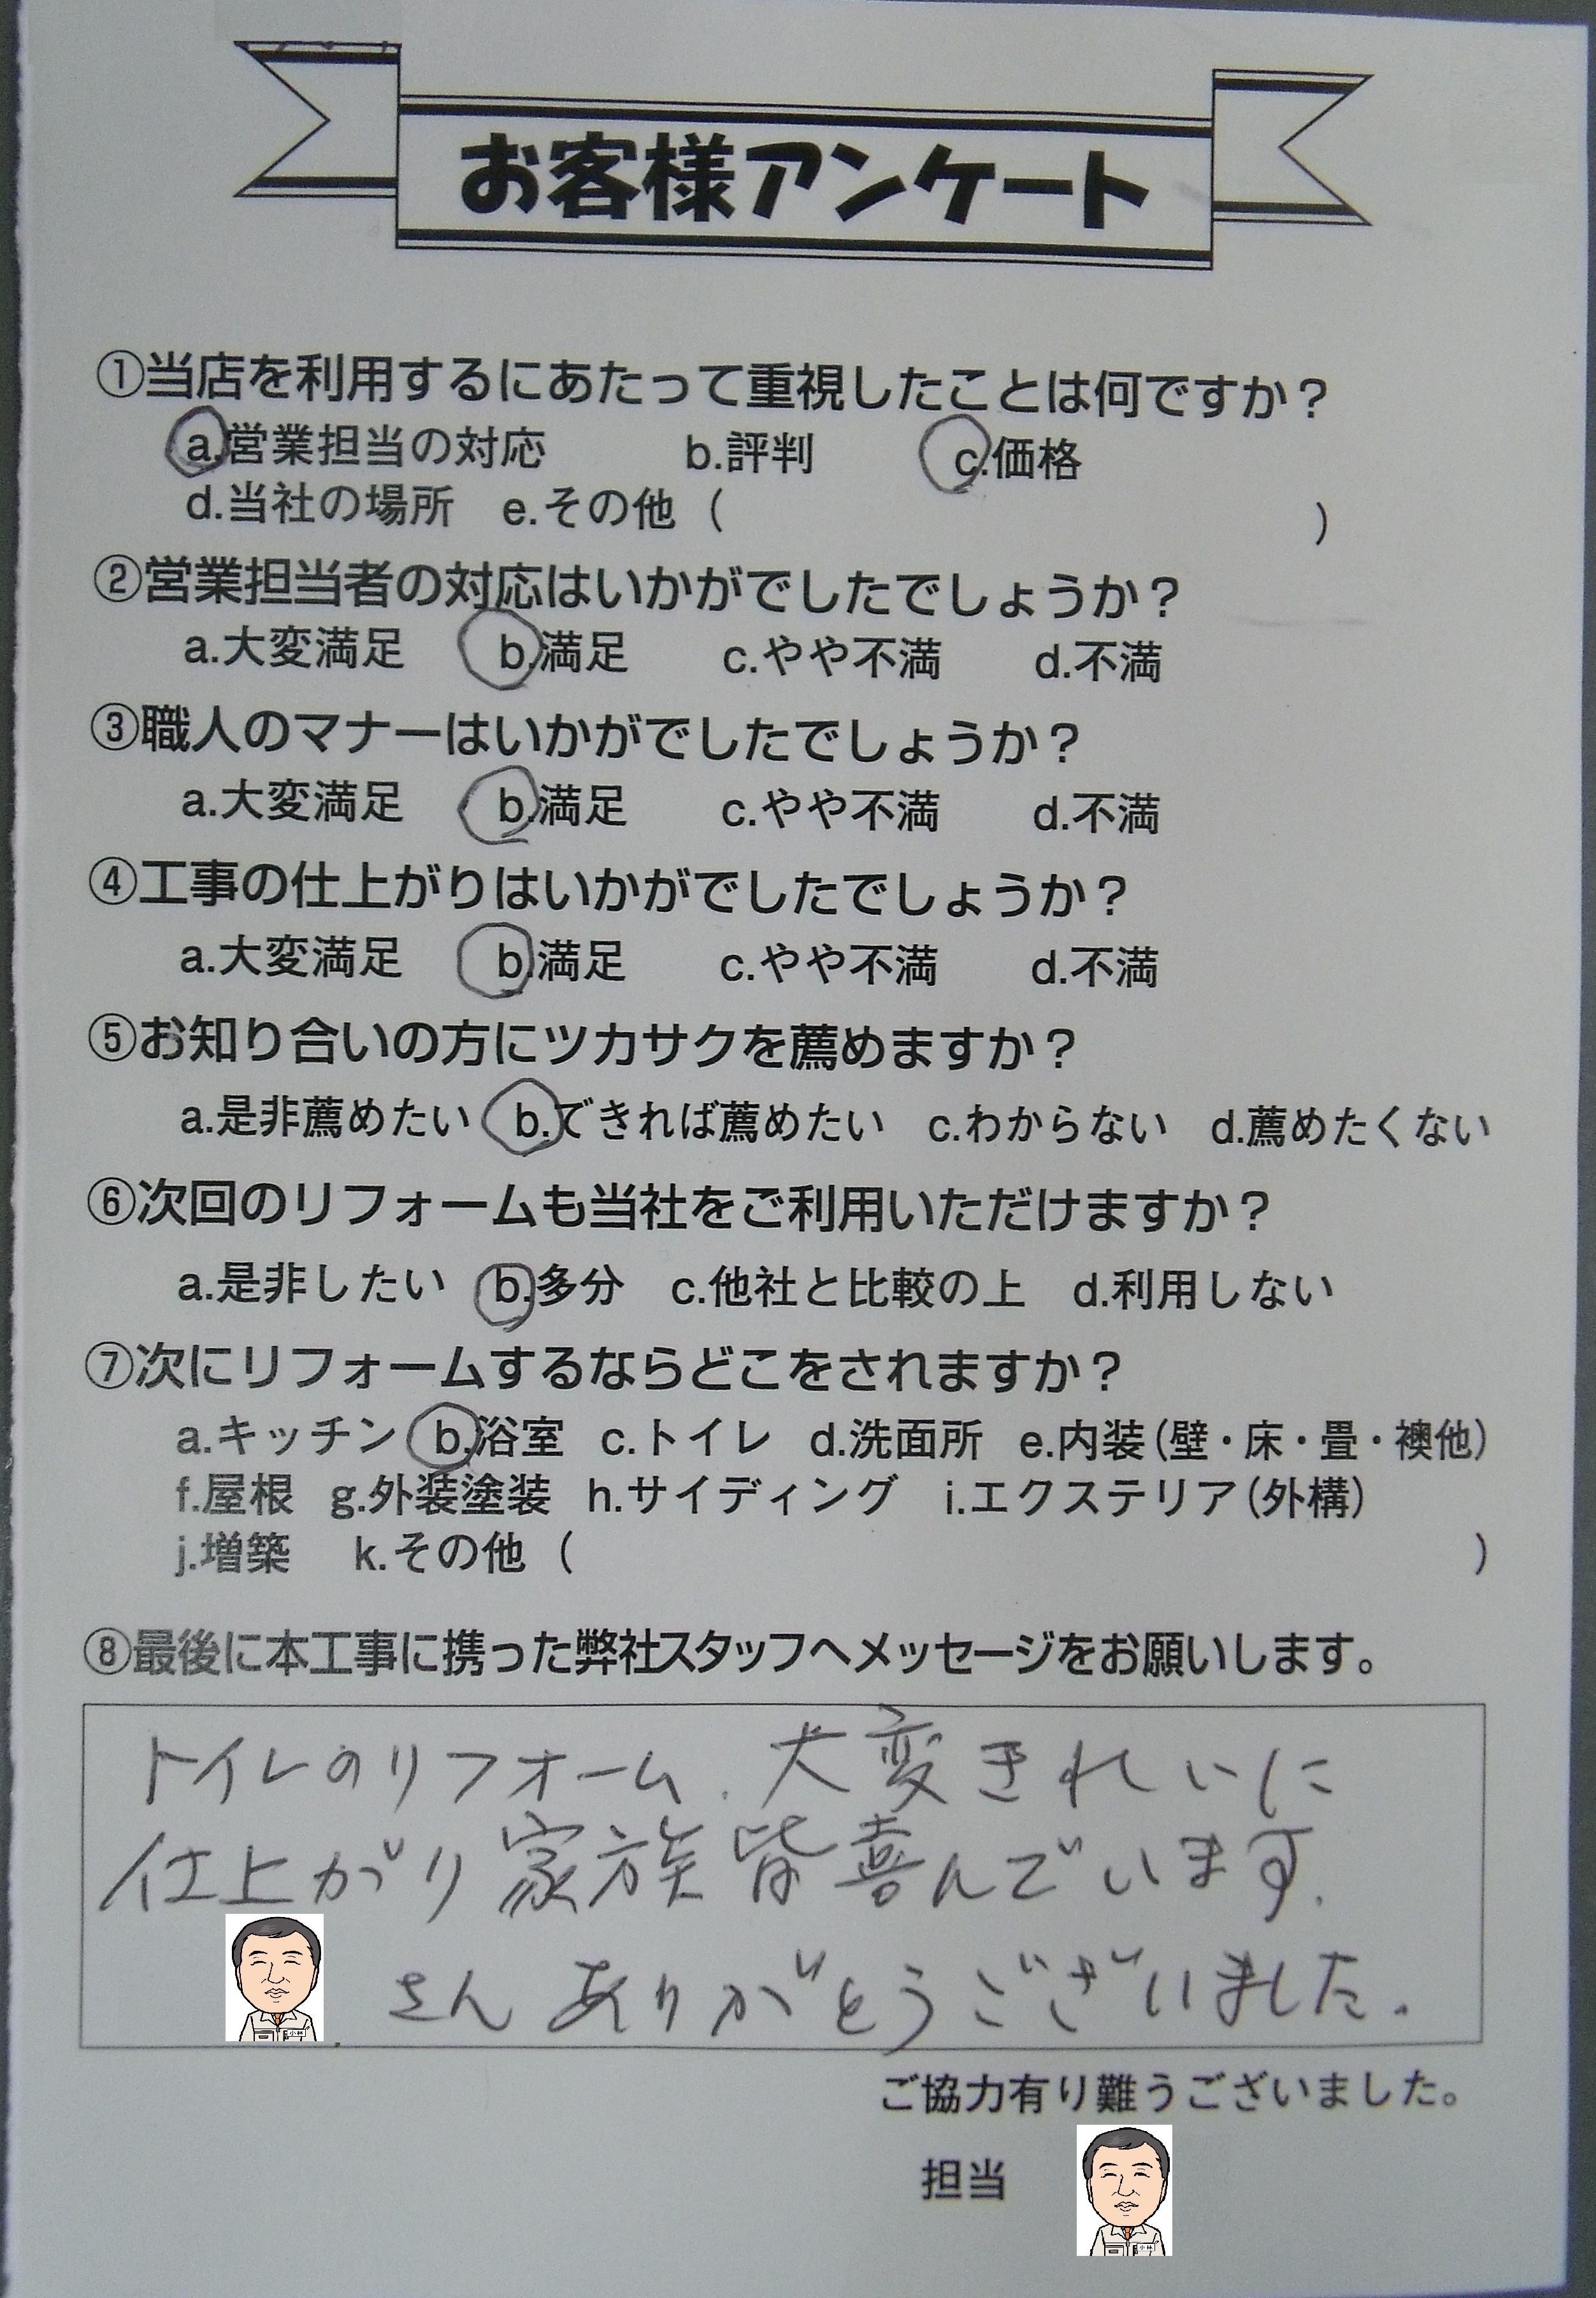 お客様アンケート
①当店を利用するにあたって重視したことは何ですか？
a.営業担当の対応 b.評判 c.価格
d.当社の場所 e.その他（ ）
②営業担当者の対応はいかがでしたでしょうか？
a.大変満足 b.満足 c.やや不満 d.不満
③職人のマナーはいかがでしたでしょうか？
a.大変満足 b.満足 c.やや不満 d.不満
④工事の仕上がりはいかがでしたでしょうか？
a.大変満足 b.満足 c.やや不満 d.不満
⑤お知り合いの方にツカサクを薦めますか？
a.是非薦めたい b.できれば薦めたい c.わからない d.薦めたくない
⑥次回のリフォームも当社をご利用いただけますか？
a.是非したい b.多分 c.他社と比較の上 d.利用しない
⑦次にリフォームするならどこをされますか？
a.キッチン b.浴室 c.トイレ d.洗面所 e.内装（壁・床・畳・襖他）
f.屋根 g.外装塗装 h.サイディング i.エクステリア（外構）
j.増築 k.その他（ ）
⑧最後に本工事に携った弊社スタッフへメッセージをお願いします。
トイレのリフォーム、大変きれいに
仕上がり家族皆喜んでいます。
さんありがとうございました。
ご協力有り難うございました。
担当